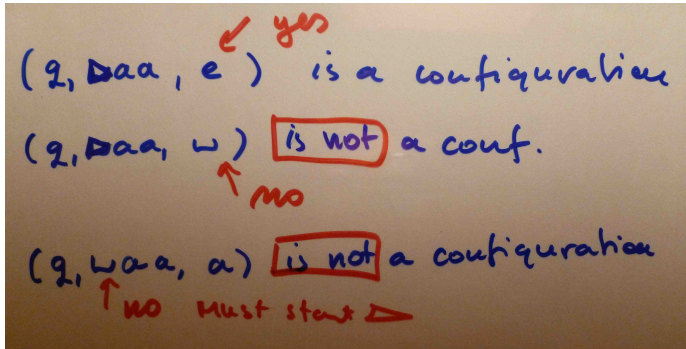 yes
(q, ▷aa, e) is a configuration
(q, ▷aa, ⊔) is not a conf.
no
(q, ⊔aa, a) is not a configuration
no Must start ▷